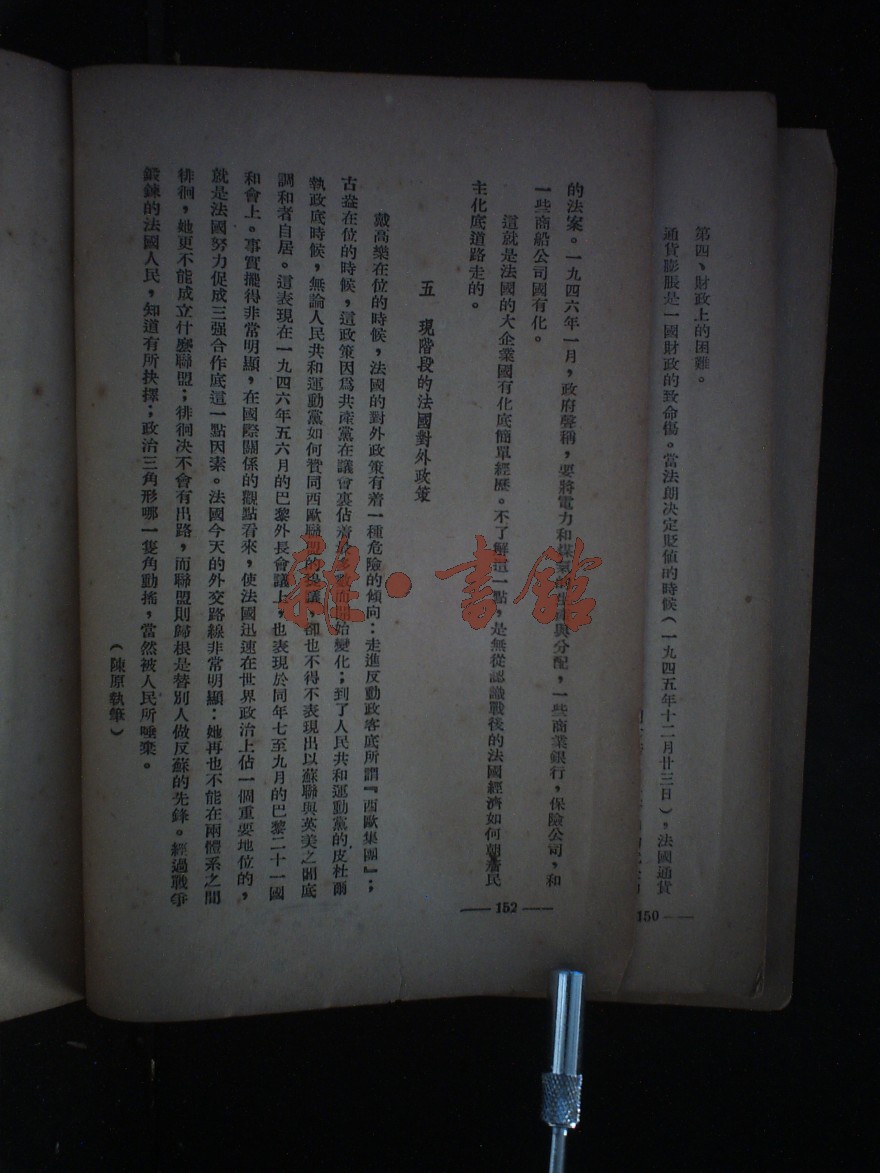 第四、財政上的困難。
通貨膨脹是一國財政的致命傷。當法朗决定貶値的時候(一九四五年十二月廿三日),法國通貨
150
的法案。一九四六年一月,政府聲稱,要將電力和煤氣的生產與分配,一些商業銀行,保險公司,和
一些商船公司國有化。
這就是法國的大企業國有化底簡單經歷。不了解這一點,是無從認識戰後的法國經濟如何朝着民
主化底道路走的。
五 現階段的法國對外政策
戴高樂在位的時候,法國的對外政策有着一種危險的傾向:走進反動政客底所謂『西歐集團』;
古益在位的時候,這政策因爲共產黨在議會裏佔着 而開始變化;到了人民共和運動黨的皮杜爾
執政底時候,無論人民共和運動黨如何贊同西歐聯盟的 議,卻也不得不表現出以蘇聯與英美之間底
調和者自居。這表現在一九四六年五六月的巴黎外長會議上,也表現於同年七至九月的巴黎二十一國
和會上。事實擺得非常明顯,在國際關係的觀點看來,使法國迅速在世界政治上佔一個重要地位的,
就是法國努力促成三强合作底這一點因素。法國今天的外交路線非常明顯:她再也不能在兩體系之間
徘徊,她更不能成立什麽聯盟;徘徊决不會有出路,而聯盟則歸根是替別人做反蘇的先鋒。經過戰爭
鍛鍊的法國人民,知道有所抉擇;政治三角形哪一隻角動搖,當然被人民所唾棄。
(陳原執筆)
152
雜·書館